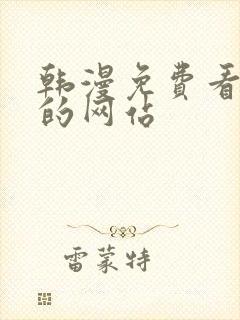 韩漫免费看
的网站
雷蒙特